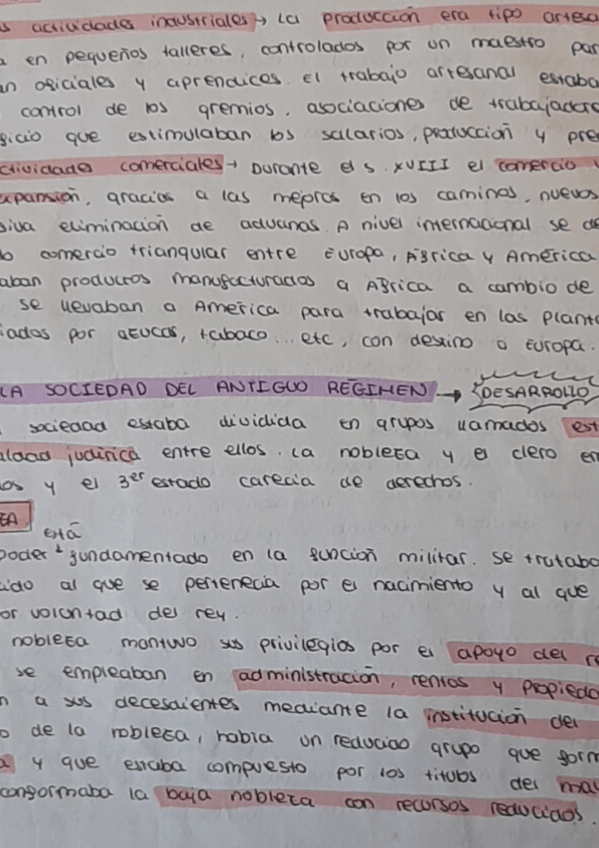 s actividades industriales → La producción era tipo artesa
a en pequeños talleres, controlados por un maestro par
an oficiales y aprendices. El trabajo artesanal estaba
control de los gremios, asociaciones de trabajadore
ficio que estimulaban los salarios, producción y pre
ctividades comerciales → Durante el s. XVIII el comercio
expansión, gracias a las mejoras en los caminos, nuevos
siva eliminación de aduanas. A nivel internacional se de
ó comercio triangular entre Europa, África y América
aban productos manufacturados a África a cambio de
se llevaban a América para trabajar en las planta
iados por azucar, tabaco... etc, con destino a Europa.
LA SOCIEDAD DEL ANTIGUO REGIMEN → DESARROLLO
sociedad estaba dividida en grupos llamados est
aldad judírica entre ellos. La nobleza y el clero er
os y el 3er estado carecia de derechos.
EA
está
poder fundamentado en la función militar. Se trataba
ido al que se pertenecia por el nacimiento y al que
or voluntad del rey.
nobleza mantuvo sus privilegios por el apoyo del re
se empleaban en administración, rentas y propieda
n a sus decesdientes mediante la institución del
o de la nobleza, había un reducido grupo que form
a y que estaba compuesto por los titulos del ma
conformaba la baja nobleza con recursos reducidos.